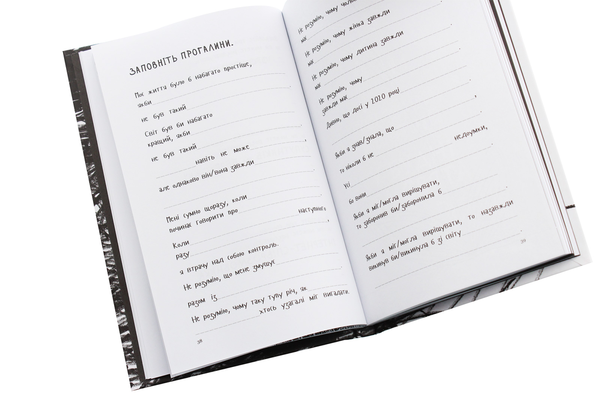 ЗАПОВНІТЬ ПРОГАЛИНИ.
Моє життя було б набагато простіше,
якби
не був такий
Світ був би набагато
кращий, якби
не був такий
навіть не може
але однаково він/вона завжди
Мені сумно щоразу, коли
починає говорити про наступної
Коли
разу
я втрачу над собою контролю.
Не розумію, що мене змушує
разом із
Не розумію, чому таку тупу річ, як
хтось узагалі міг вигадати
Не розумію, чому
має
Не розумію, чому жінка завжди
має
Не розумію, чому дитина завжди
має
Не розумію, чому
завжди має
Дивно, що досі у 2020 році
Якби я знав/знала, що
то ніколи б не недоумки,
Усі
бо вони
Якби я міг/могла вирішувати,
то заборонив би/заборонила б
Якби я міг/могла вирішувати, то назавжди
викинув би/викинула б зі світу